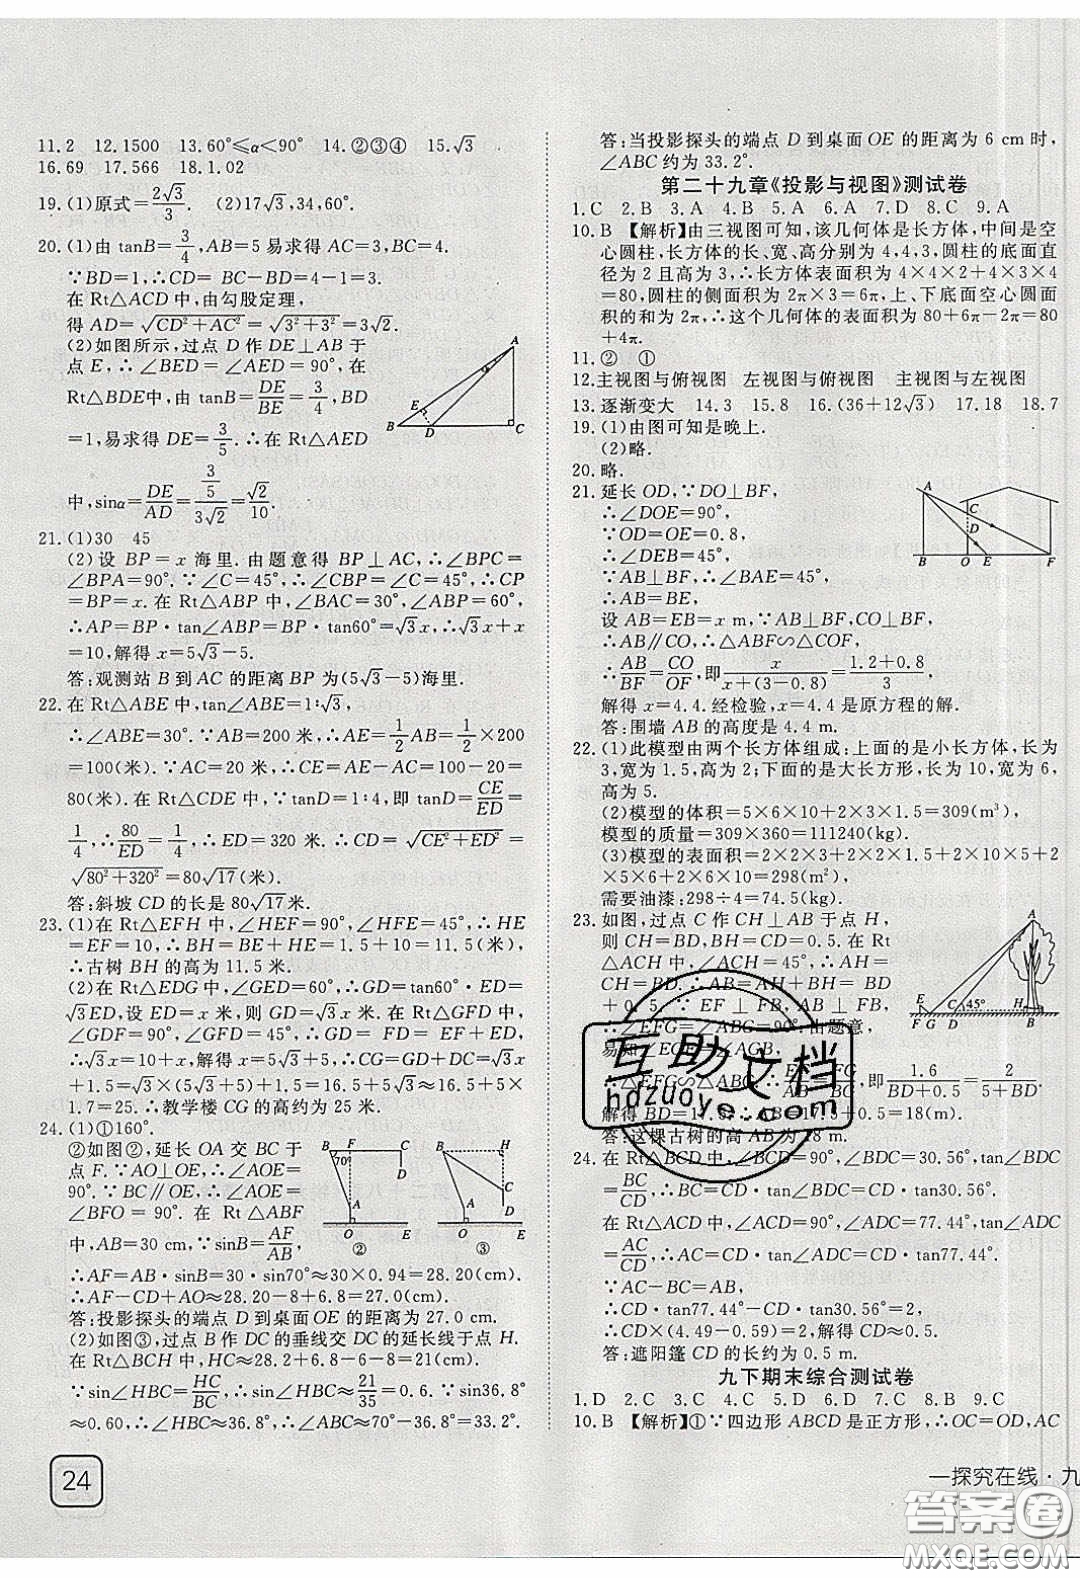 11.2　12.1500　13.60°≤α＜90°　14.②③④　15.√3
16.69　17.566　18.1.02
19.(1)原式=2√3/3.　(2)17√3,34,60°.
20.(1)由 tanB=3/4,AB=5 易求得 AC=3,BC=4.
∵BD=1,∴CD= BC-BD=4-1=3.
在 Rt△ACD 中,由勾股定理,
得 AD=√(CD²+AC²)=√(3²+3²)=3√2.
(2)如图所示,过点 D 作 DE⊥AB 于
点 E,∴∠BED=∠AED=90°,在
Rt△BDE中,由 tanB=DE/BE=3/4,BD
=1,易求得 DE=3/5.∴在 Rt△AED
中,sinα=DE/AD=(3/5)/(3√2)=√2/10.
A
E
B D C
21.(1)30　45
(2)设 BP=x 海里.由题意得 BP⊥AC,∴∠BPC
=∠BPA=90°.∵∠C=45°,∴∠CBP=∠C=45°,∴CP
=BP=x.在 Rt△ABP 中,∠BAC=30°,∠ABP=60°,
∴AP=BP·tan∠ABP=BP·tan60°=√3x,∴√3x+x
=10,解得 x=5√3-5.
答:观测站 B 到 AC 的距离 BP 为(5√3-5)海里.
22.在 Rt△ABE 中,∵tan∠ABE=1∶√3,
∴∠ABE=30°.∵AB=200 米,∴AE=1/2AB=1/2×200
=100(米).∵AC=20 米,∴CE=AE-AC=100-20=
80(米).在 Rt△CDE 中,∵tanD=1∶4,即 tanD=CE/ED=
1/4,∴80/ED=1/4,∴ED=320 米.∴CD=√(CE²+ED²)=
√(80²+320²)=80√17(米).
答:斜坡 CD 的长是 80√17米.
23.(1)在 Rt△EFH 中,∠HEF=90°,∠HFE=45°,∴HE
=EF=10,∴BH=BE+HE=1.5+10=11.5(米).
∴古树 BH 的高为 11.5 米.
(2)在 Rt△EDG 中,∠GED=60°,∴GD=tan60°·ED=
√3ED,设 ED=x米,则 GD=√3x米.在 Rt△GFD 中,
∠GDF=90°,∠GFD=45°,∴GD = FD = EF + ED,
∴√3x=10+x,解得 x=5√3+5,∴CG=GD+DC=√3x
+1.5=√3(5√3+5)+1.5=16.5+5√3≈16.5+5×
1.7=25.∴教学楼 CG的高约为 25 米.
24.(1)①160°.
②如图②,延长 OA 交 BC 于
点 F.∵AO⊥OE,∴∠AOE=
90°.∵BC∥OE,∴∠AOE=
∠BFO = 90°. 在 Rt △ABF
中,AB=30 cm,∵sinB=AF/AB,
B F C
70°
D
A
O E
②
B H
C
D
A
O E
③
∴AF=AB·sinB=30·sin70°≈30×0.94=28.20(cm).
∴AF-CD+AO≈28.20-8+6.8=27.0(cm).
答:投影探头的端点 D 到桌面 OE 的距离为 27.0 cm.
(2)如图③,过点 B 作 DC 的垂线交 DC 的延长线于点 H.
在 Rt△BCH 中,HC≈28.2+6.8-6-8=21(cm).
∵sin∠HBC=HC/BC,∴sin∠HBC≈21/35=0.6.∵sin36.8°
≈0.60,∴∠HBC≈36.8°,∴∠ABC≈70°-36.8°=33.2°.
24
答:当投影探头的端点 D 到桌面 OE 的距离为 6 cm 时,
∠ABC 约为 33.2°.
第二十九章《投影与视图》测试卷
1.C　2.B　3.A　4.B　5.A　6.A　7.D　8.C　9.A
10.B　【解析】由三视图可知,该几何体是长方体、中空心
圆柱,长方体的长、宽、高分别为 4,4,3,圆柱的底面直
径为 2 且高为 3,∴长方体表面积为 4×4×2+4×3×4
=80,圆柱的侧面积为 2π×3=6π,上、下底面空心圆面
积的和为 2π,∴这个几何体的表面积为 80+6π-2π=80
+4π.
11.②　①
12.主视图与俯视图　左视图与俯视图　主视图与左视图
13.逐渐变大　14.3　15.8　16.(36+12√3)　17.18　18.7
19.(1)由图可知是晚上.
(2)略.
20.略.
21.延长 OD,∵DO⊥BF,
∴∠DOE=90°,
∵OD=OE=0.8,
∴∠DEB=45°,
∵AB⊥BF,∴∠BAE=45°,
∴AB=BE,
设 AB=EB=x m,∵AB⊥BF,CO⊥BF,
∴AB∥CO,∴△ABF∽△COF,
∴AB/BF=CO/OF,即x/(x+(3-0.8))=(1.2+0.8)/3,
解得 x=4.4.经检验,x=4.4 是原方程的解.
答:围墙 AB 的高度是 4.4 m.
A
C
D
B O E F
22.(1)此模型由两个长方体组成:上面的是小长方体,长为
3,宽为 1.5,高为 2;下面的是大长方形,长为 10,宽为 6,
高为 5.
(2)模型的体积=5×6×10+2×3×1.5=309(m³),
模型的质量=309×360=111240(kg).
(3)模型的表面积=2×2×3+2×1.5×2+5×10×
2+2×5×6+2×6×10=298(m²),
需要油漆:298÷4=74.5(kg).
23.如图,过点 C 作 CH⊥AB 于点 H,
则 CH=BD,BH=CD=0.5.在 Rt
△ACH 中,∠ACH=45°,∴AH=
CH=BD.∴AB=AH+BH=BD
+0.5.∵EF ⊥ FB, AB ⊥ FB,
∴∠EFG=∠ABG=90°.由题意,
易知∠EGF=∠AGB,
∴△EFG∽△ABG,∴EF/AB=FG/BG,即1.6/(BD+0.5)=2/(5+BD).
解得 BD=17.5,∴AB=17.5+0.5=18(m).
答:这棵古树的高 AB 为 18 m.
A
E
C 45° H
F G D B
24.在 Rt△BCD 中,∠BDC=90°,∠BCD=30.56°,tan∠BDC=
BC/CD,∴BC=CD·tan∠BDC=CD·tan30.56°.
在 Rt△ACD 中,∠ACD=90°,∠ADC=77.44°,tan∠ADC
=AC/CD,∴AC=CD·tan∠ADC=CD·tan77.44°.
∵AC-BC=AB,
∴CD·tan77.44°-CD·tan30.56°=2,
∴CD×(4.49-0.59)=2,解得 CD≈0.5.
答:遮阳篷 CD 的长约为 0.5 m.
九下期末综合测试卷
1.D　2.C　3.C　4.C　5.D　6.C　7.C　8.B　9.C
10.B　【解析】①∵四边形 ABCD 是正方形,∴OC=OD,AC
一探究在线·九
互助文档
hdzuoye.com
答案圈
MXQE.COM